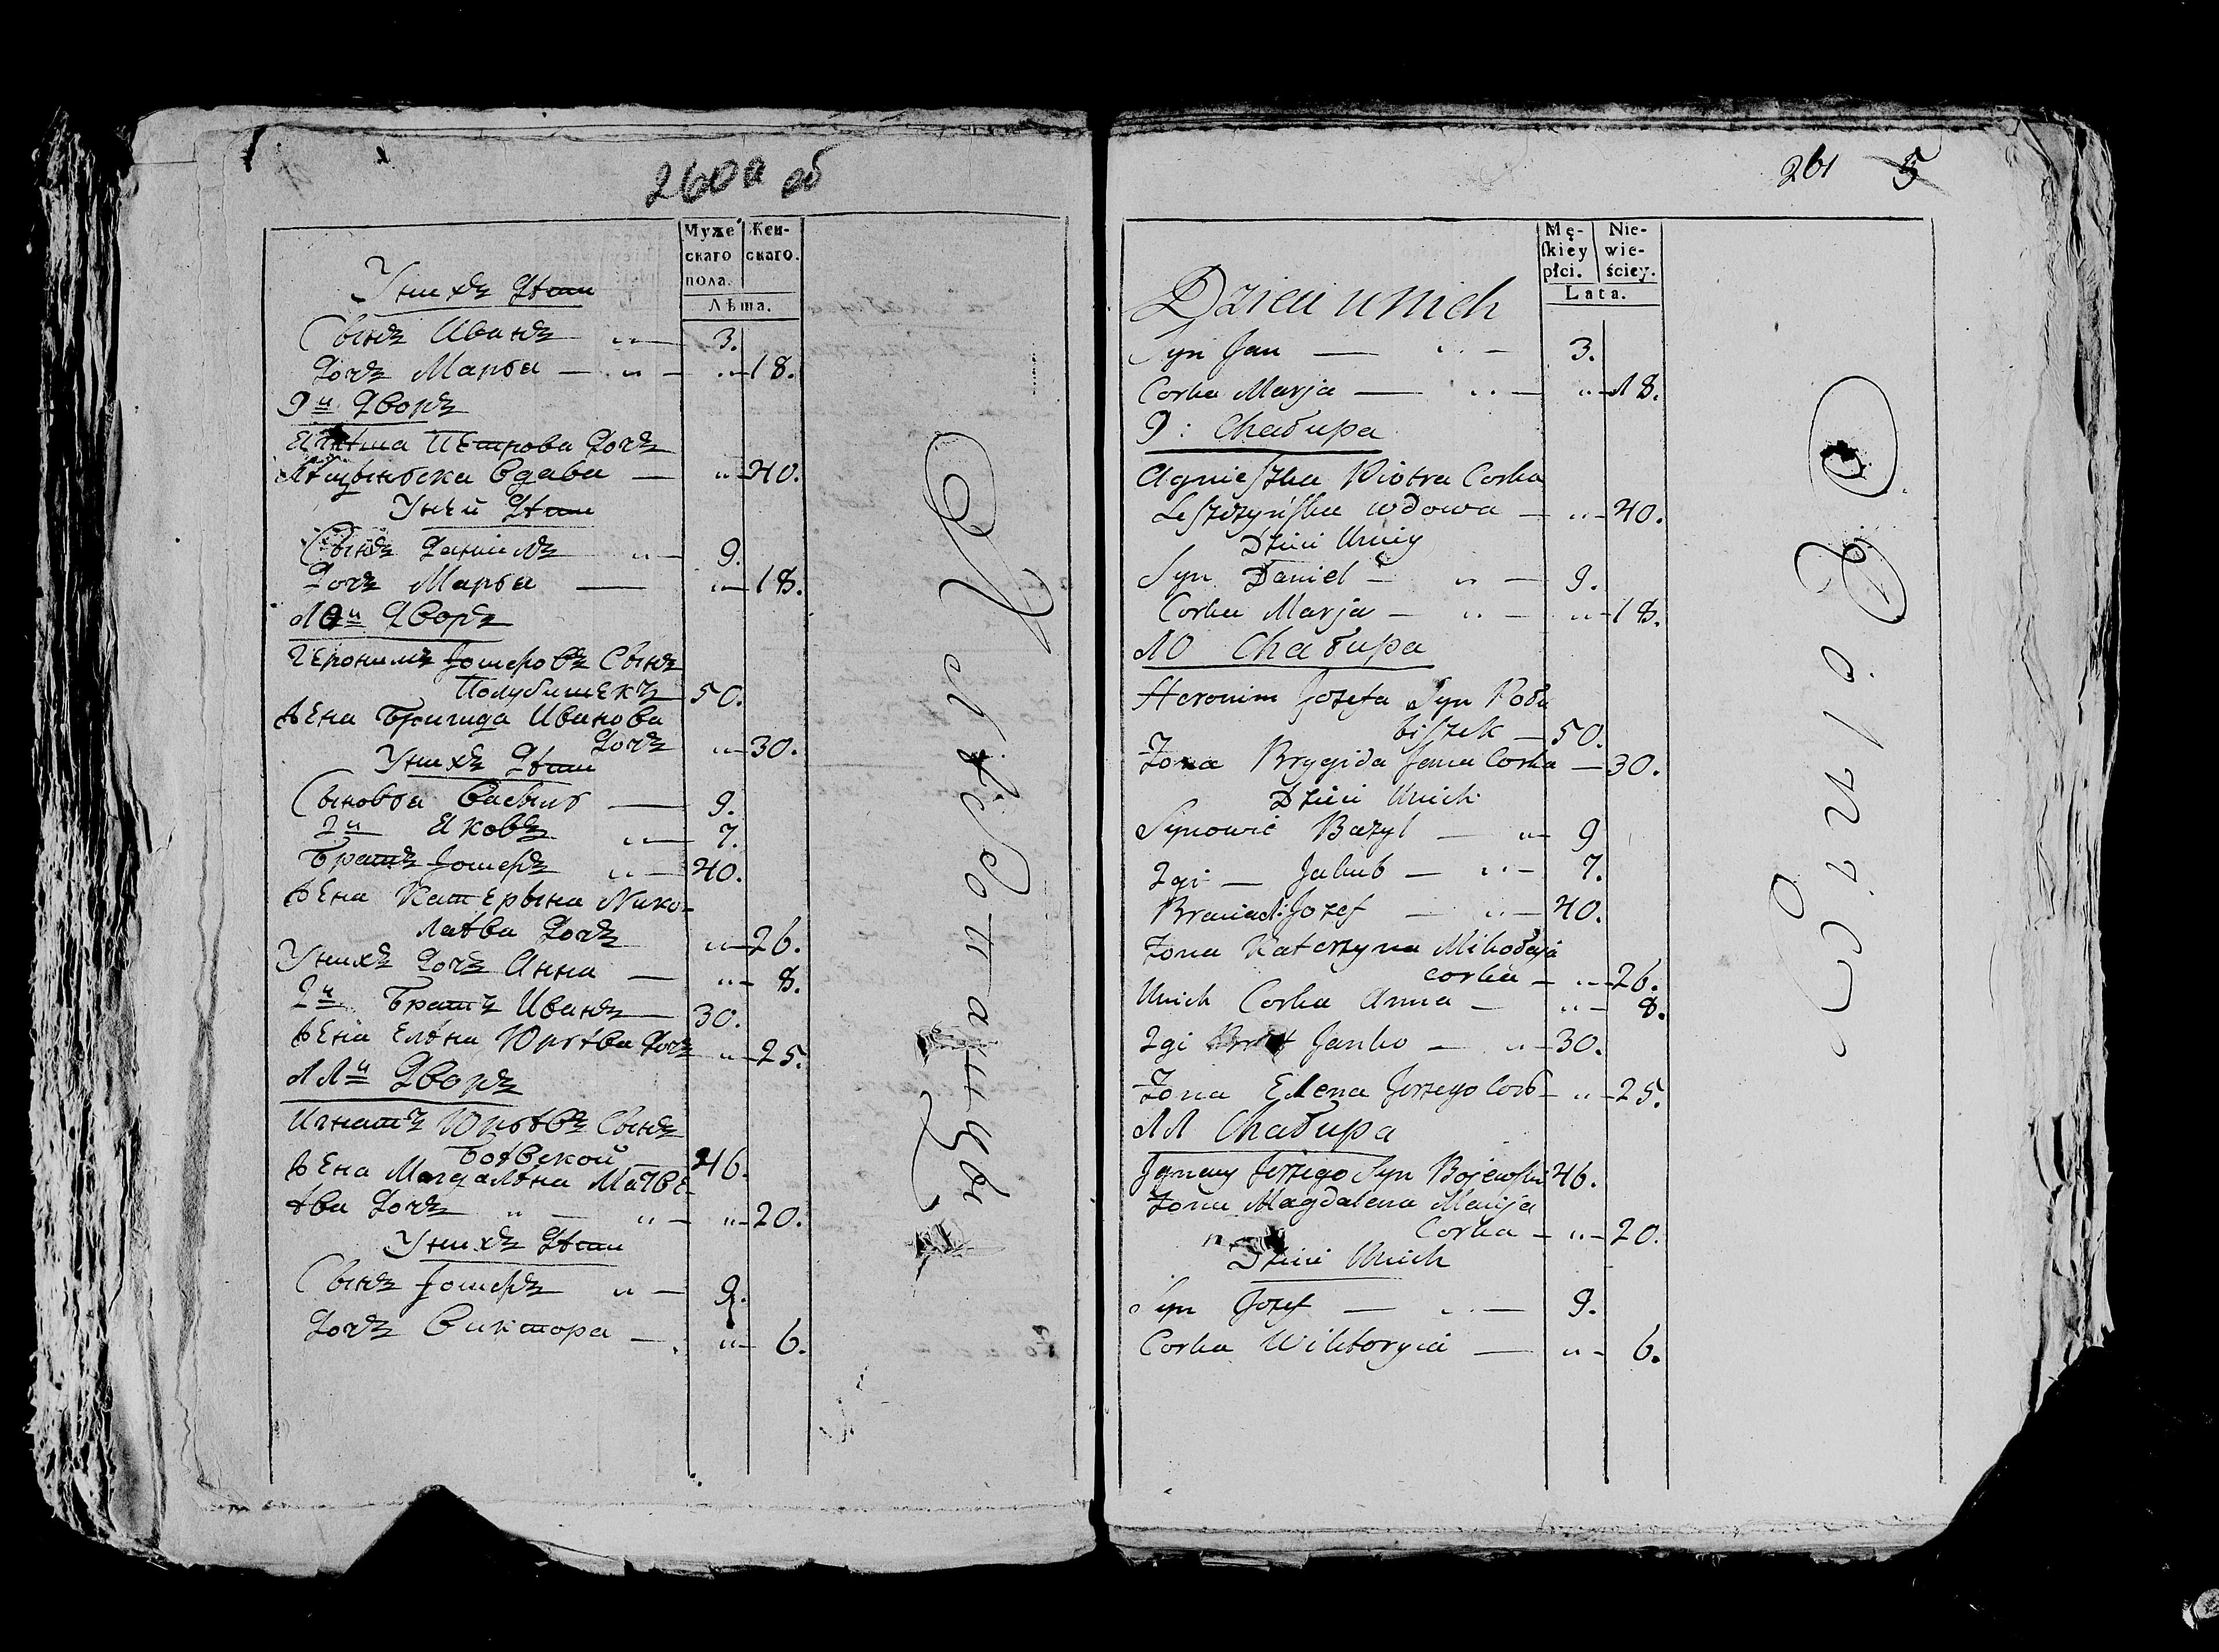 260а об
Муже
скаго
пола.
Жен-
скаго.
Лѣта.
Унихъ Дѣти
Сынъ Иванъ „ — 3.
Дочъ Марья — „ — „ — 18.
9й Дворъ
Петрова Дочъ
вдава — „ — 40.
Уней Дѣти
Сынъ Данiилъ „ — 9.
Дочъ Марья — „ — 18.
10й Дворъ
Геронимъ Iошефовъ Сынъ
Полубишекъ 50.
Жена Бригида Иванова
Дочъ „ — 30.
Унихъ Дѣти
Сыновья Василь — 9.
2й Яковъ „ — 7.
Братъ Iошефъ „ — 40.
Жена Катерына Нико-
лаѣва Дочъ „ — 26.
Унихъ Дочъ Анна — „ — 8.
2й Братъ Иванъ — 30.
Жена Елѣна Юрьѣва Дочъ „ — 25.
11й Дворъ
Игнатъ Юрьѣвъ Сынъ
Боѣвской 46.
Жена Магдалѣна Матвѣ-
ѣва Дочъ „ — „ — „ — 20.
Унихъ Дѣти
Сынъ Iошефъ „ — 9.
Дочъ Виктора — „ — 6.
261 5
Mę-
ſkiey
płci.
Nie-
wie-
ściey.
Lata.
Dzieci unich
Syn Jan — „ — 3.
Corka Marja — „ — „ — 18.
9: Chałupa
Agnieſzka Piotra Corka
Leſzczyńſka wdowa — „ — 40.
Dzieci Uniey
Syn Daniel — „ — 9.
Corka Marja — „ — „ — 18.
10 Chałupa
Heronim Jozefa Syn Połu
biſzek — 50.
Zona Brygida Jana Corka — 30.
Dzieci Unich
Synowie Bazyl — „ — 9
2gi — Jakub — „ — 7.
Jozef — „ — 40.
Zona Katerzyna Mikołaja
corka — „ — 26.
Unich Corka Anna — „ — 8.
2gi Janko — „ — 30.
Zona Elena Jerzego Cor — „ — 25.
11 Chałupa
Jgnacy Jerzego Syn Bojewſki 46.
Zona Magdalena
Corka — „ — 20.
Dzieci Unich
Syn Jozef — „ — 9.
Corka Wiktorya — „ — 6.